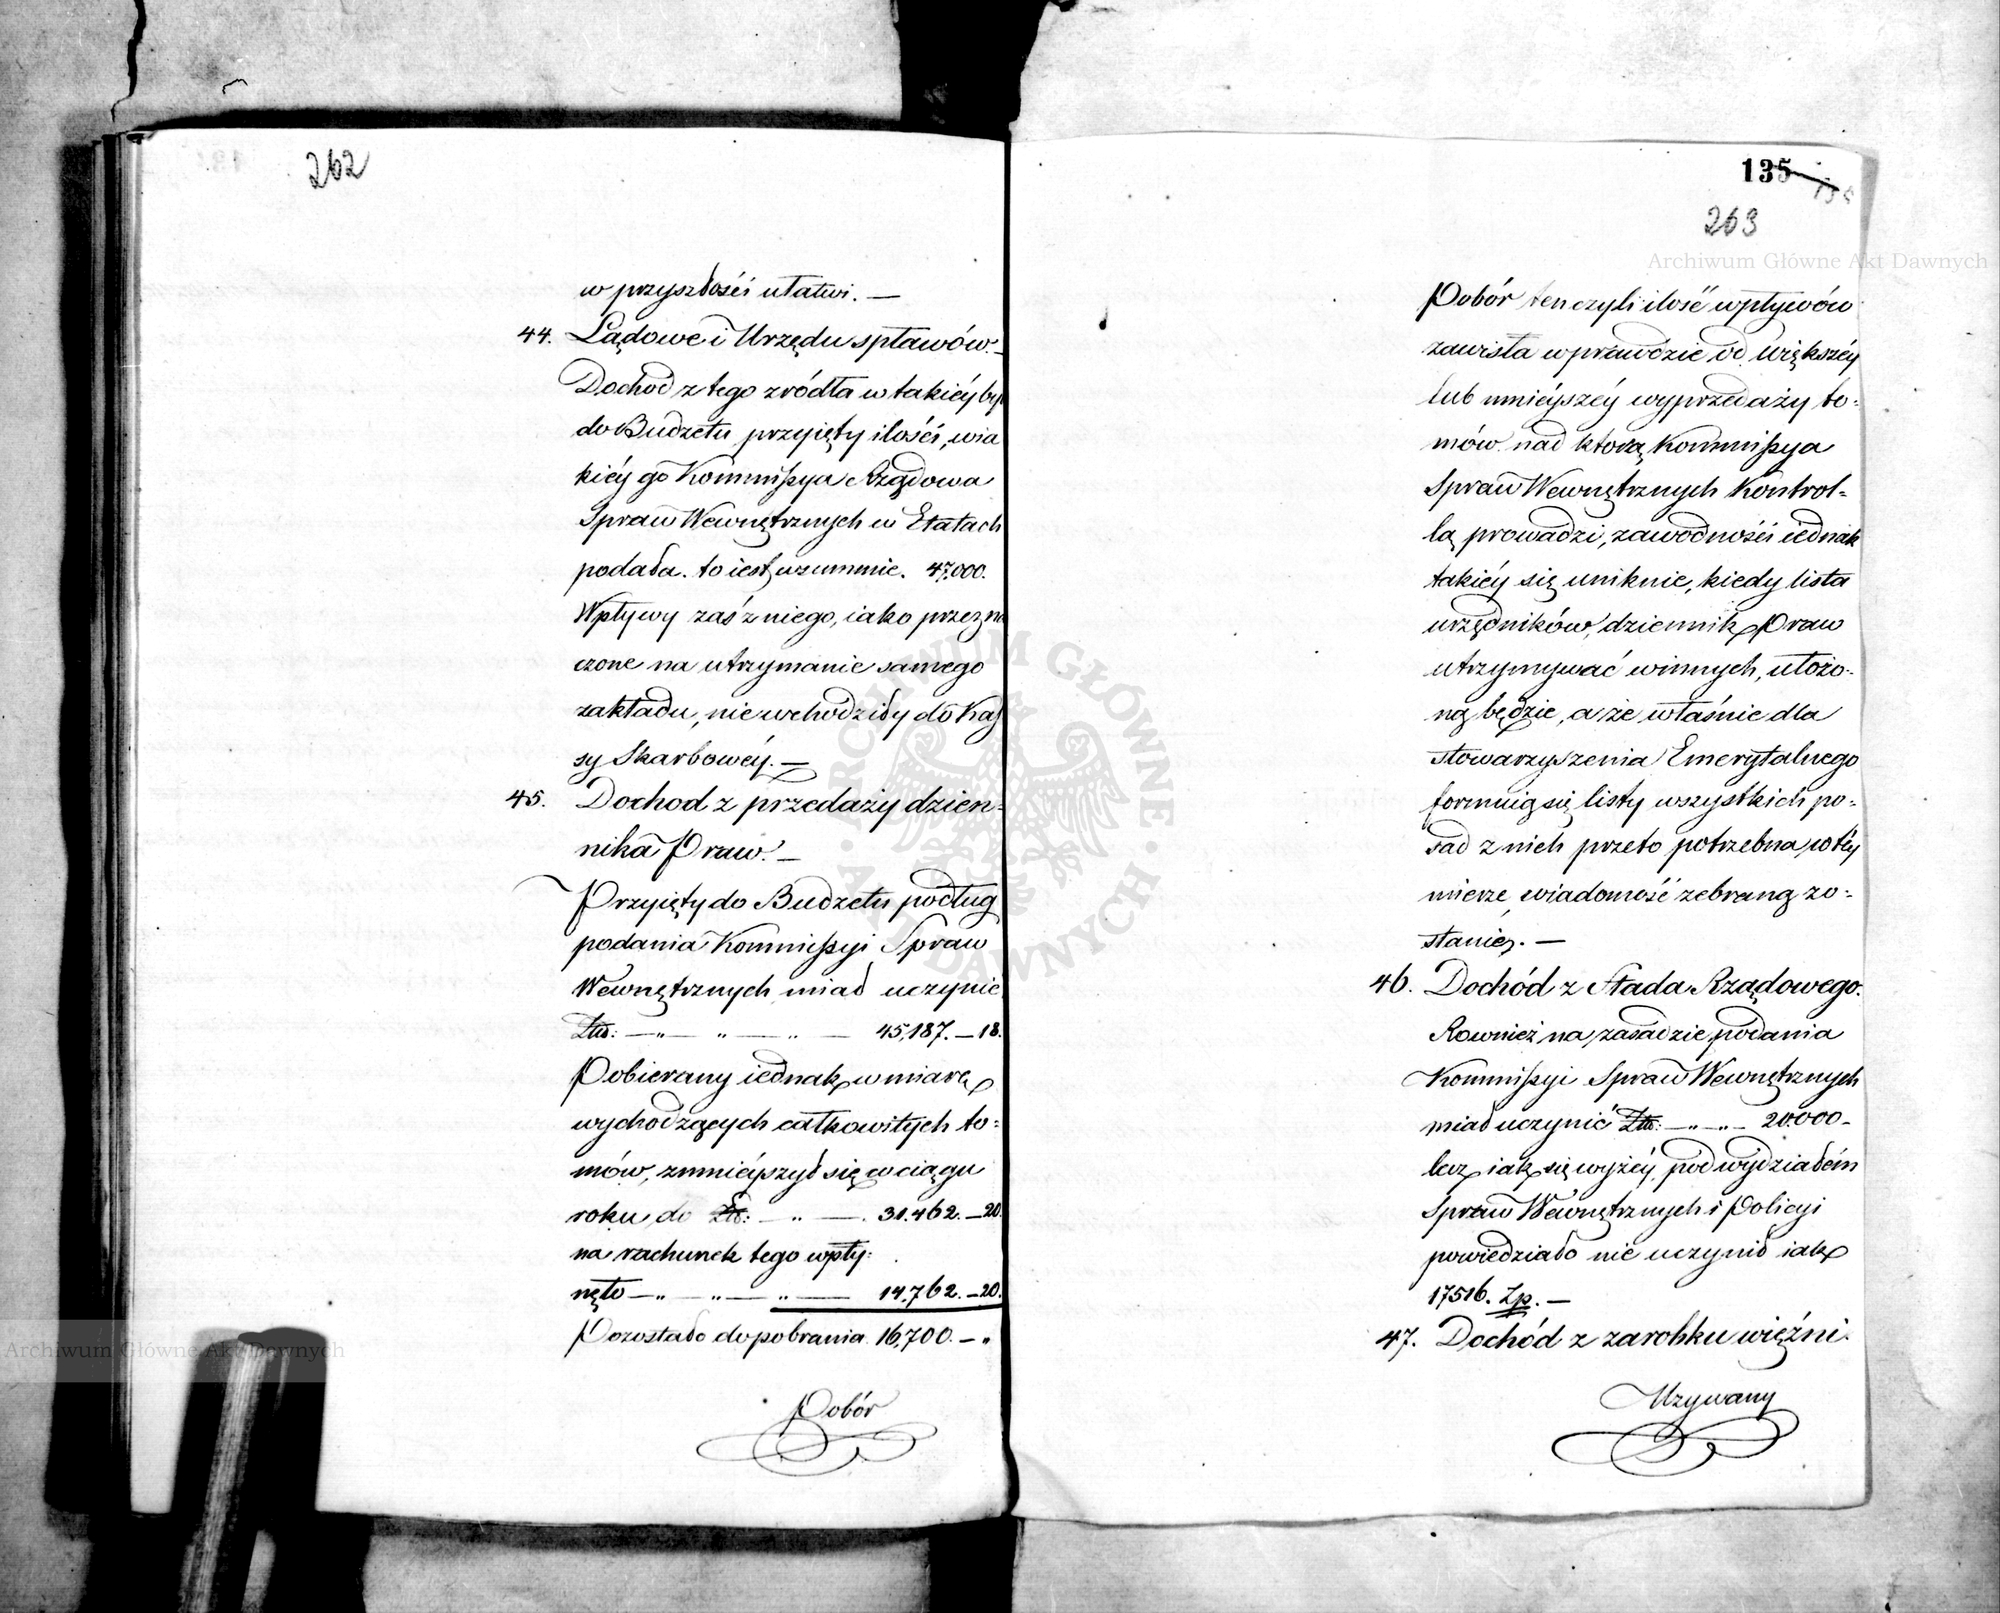 262
w przyszłości ułatwi. —
44. Lądowe i Urzędu spławów. —
Dochod z tego zródła w takiéy był
do Budżetu przyięty ilości, w ia
kiéy go Kommissya Rządowa
Spraw Wewnętrznych w Etatach
podała. to iest w summie. 47,000.
Wpływy zaś z niego, iako przezna
czone na utrzymanie samego
zakładu, nie wchodziły do Kas
sy Skarbowéy. —
45. Dochod z przedaży dzien=
nika Praw. —
Przyięty do Budżetu podług
podania Kommissyi Spraw
Wewnętrznych miał uczynić
Złł: — „ — „ — „ — 45,187. — 18.
Pobierany iednak w miarę
wychodzących całkowitych to=
mów, zmnieyszył się w ciągu
roku do Złł: — „ — . 31.462. — 20.
na rachunek tego wpły=
nęło — „ — „ — „ — 14,762. — 20.
Pozostało do pobrania 16,700. — „
Pobór
135
263
Pobór ten czyli ilość wpływów
zawisła wprawdzie od większéy
lub mnieyszéy wyprzedaży to=
mów nad ktorą Kommissya
Spraw Wewnętrznych Kontrol=
lą prowadzi, zawodności iednak
takiéy się uniknie, kiedy lista
urzędników, dziennik Praw
utrzymywać winnych, ułożo=
ną będzie, a że właśnie dla
stowarzyszenia Emerytalnego
formuią się listy wszystkich po=
sad z nich przeto potrzebna w téy
mierze wiadomość zebraną zo=
stanie. —
46. Dochód z Stada Rządowego.
Rownież na zasadzie podania
Kommissyi Spraw Wewnętrznych
miał uczynić Złł: — „ — „ — 20.000 —
lecz iak się wyżéy pod wydziałem
Spraw Wewnętrznych i Policyi
powiedziało nie uczynił iak
17516. Zp. —
47. Dochód z zarobku więźni.
Używany
Archiwum Główne Akt Dawnych
Archiwum Główne Akt Dawnych
ARCHIWUM GŁÓWNE AKT DAWNYCH